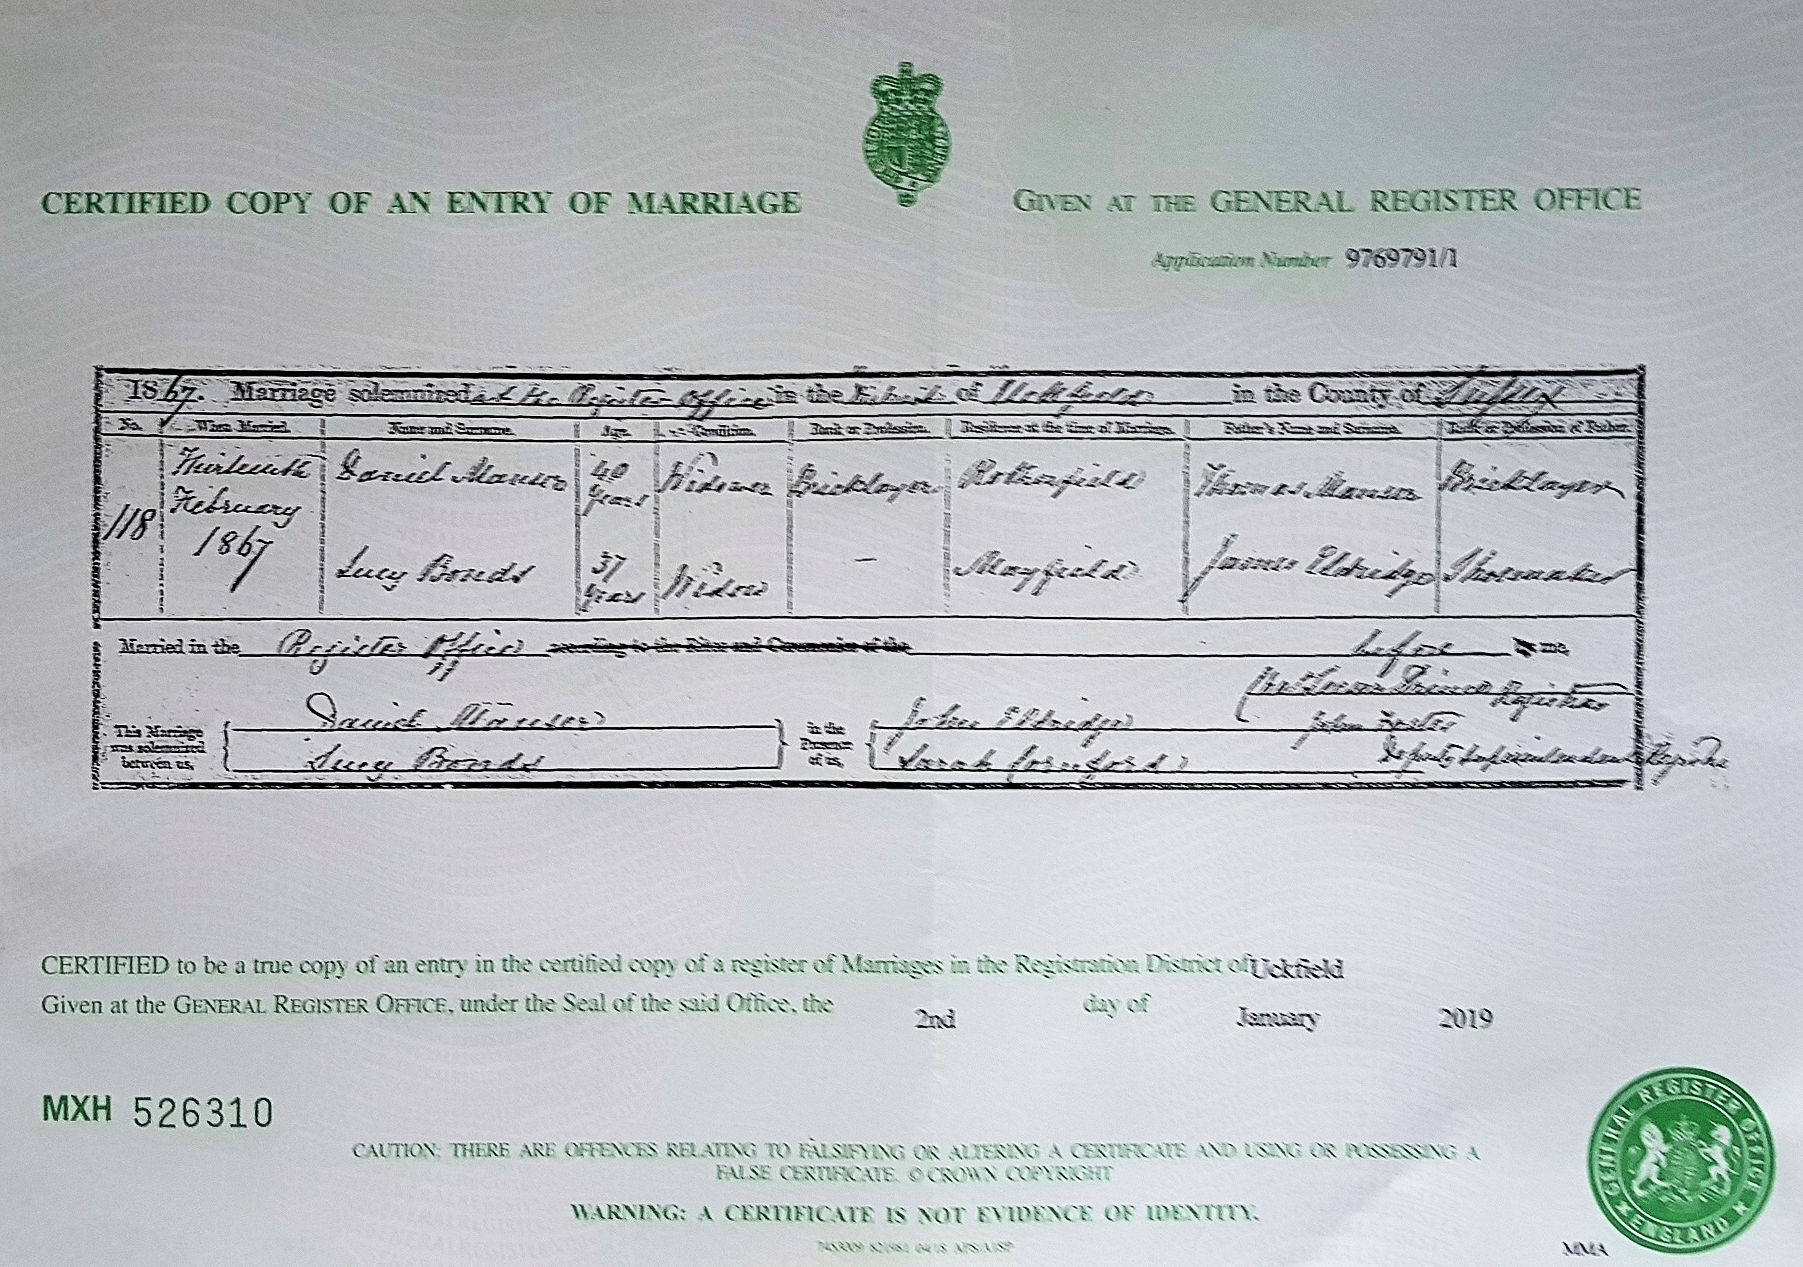 CERTIFIED COPY OF AN ENTRY OF MARRIAGE
GIVEN AT THE GENERAL REGISTER OFFICE
Application Number 9769791/1
1867. Marriage solemnized at the Register Office in the District of Uckfield in the County of Sussex
No. When Married. Name and Surname. Age. Condition. Rank or Profession. Residence at the time of Marriage. Father's Name and Surname. Rank or Profession of Father.
118 Thirteenth February 1867 Daniel Manser 40 years Widower Bricklayer Rotherfield Thomas Manser Bricklayer
Lucy Bonds 37 years Widow — Mayfield James Eldridge Shoemaker
Married in the Register Office according to the Rites and Ceremonies of the before me,
Registrar
This Marriage was solemnized between us, Daniel Manser Lucy Bonds in the Presence of us, John Eldridge Sarah Cornford
John Foster
Deputy Superintendent Registrar
CERTIFIED to be a true copy of an entry in the certified copy of a register of Marriages in the Registration District of Uckfield
Given at the GENERAL REGISTER OFFICE, under the Seal of the said Office, the 2nd day of January 2019
MXH 526310
CAUTION: THERE ARE OFFENCES RELATING TO FALSIFYING OR ALTERING A CERTIFICATE AND USING OR POSSESSING A
FALSE CERTIFICATE. © CROWN COPYRIGHT
WARNING: A CERTIFICATE IS NOT EVIDENCE OF IDENTITY.
GENERAL REGISTER OFFICE ENGLAND
MMA